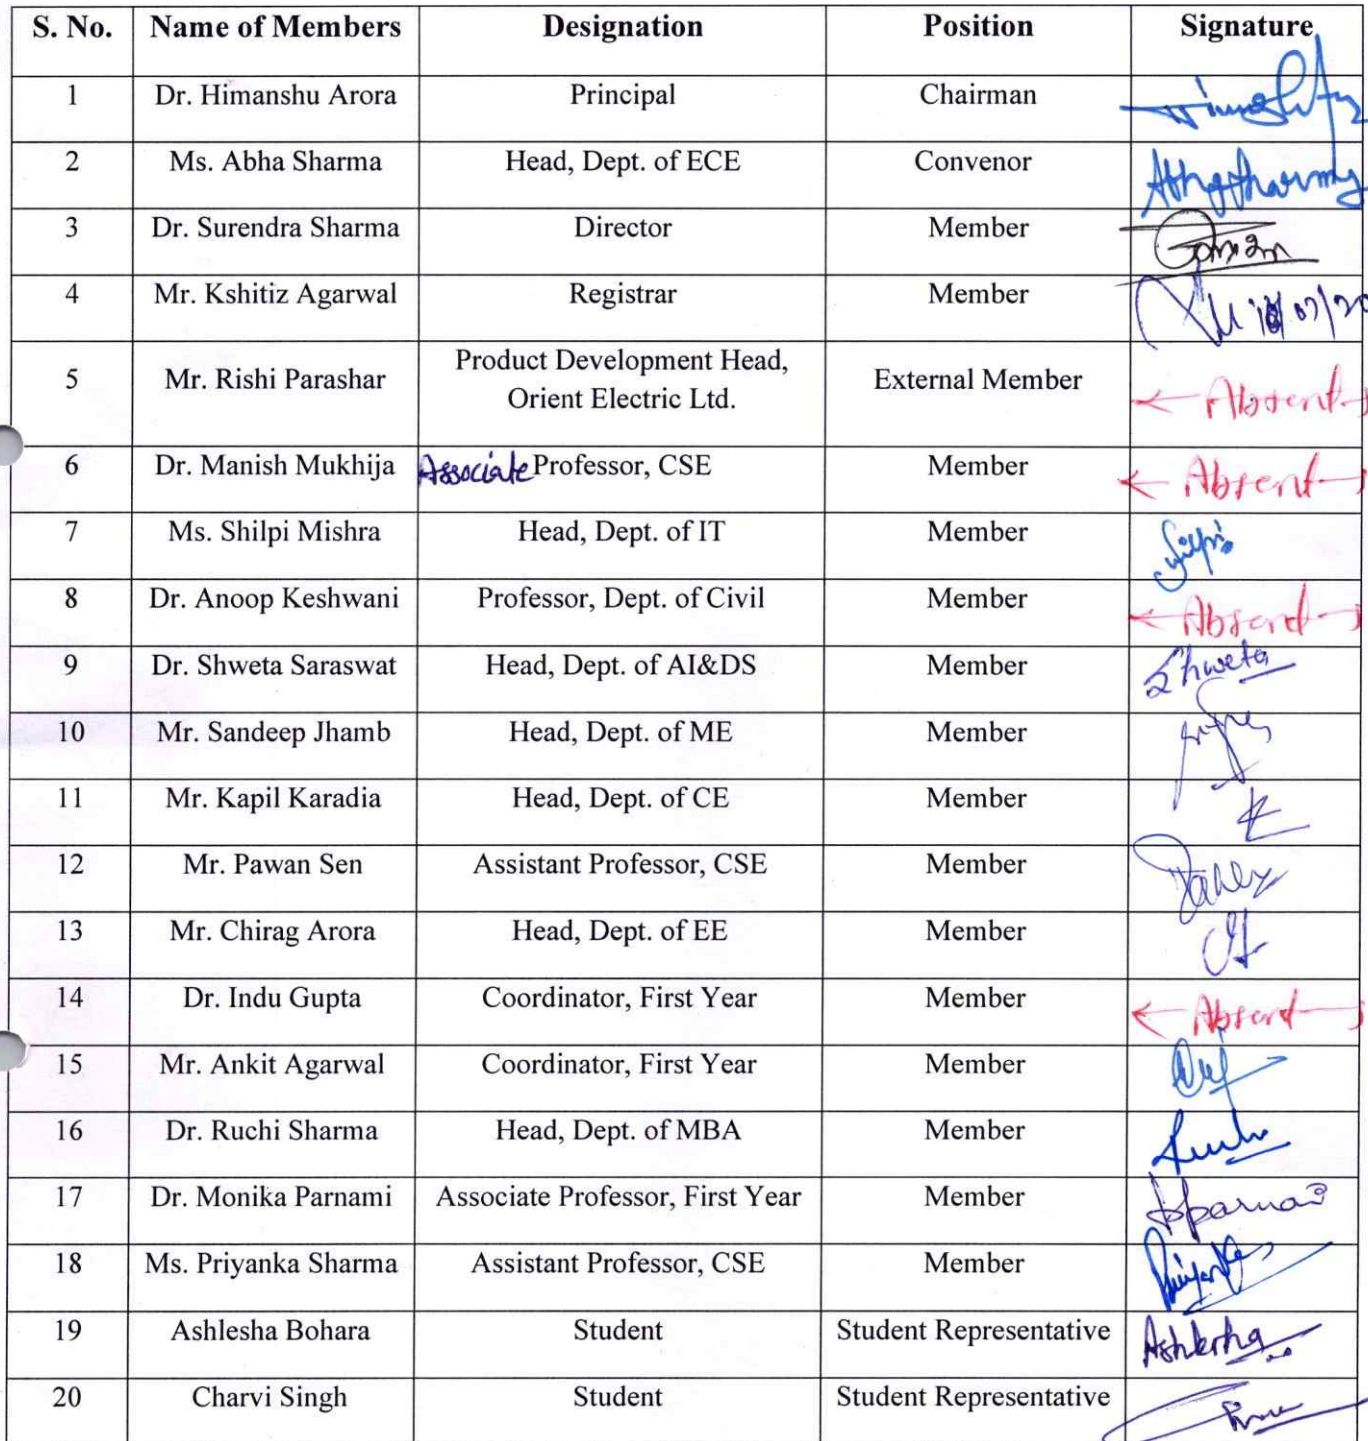 S. No. Name of Members Designation Position Signature
1 Dr. Himanshu Arora Principal Chairman
2 Ms. Abha Sharma Head, Dept. of ECE Convenor Abhasharma
3 Dr. Surendra Sharma Director Member
4 Mr. Kshitiz Agarwal Registrar Member
Product Development Head,
5 Mr. Rishi Parashar External Member Absent
Orient Electric Ltd.
6 Dr. Manish Mukhija Associate Professor, CSE Member Absent
7 Ms. Shilpi Mishra Head, Dept. of IT Member Shilpi
8 Dr. Anoop Keshwani Professor, Dept. of Civil Member Absent
9 Dr. Shweta Saraswat Head, Dept. of AI&DS Member Shweta
10 Mr. Sandeep Jhamb Head, Dept. of ME Member
11 Mr. Kapil Karadia Head, Dept. of CE Member
12 Mr. Pawan Sen Assistant Professor, CSE Member
13 Mr. Chirag Arora Head, Dept. of EE Member
14 Dr. Indu Gupta Coordinator, First Year Member Absent
15 Mr. Ankit Agarwal Coordinator, First Year Member
16 Dr. Ruchi Sharma Head, Dept. of MBA Member
17 Dr. Monika Parnami Associate Professor, First Year Member
18 Ms. Priyanka Sharma Assistant Professor, CSE Member
19 Ashlesha Bohara Student Student Representative Ashlesha
20 Charvi Singh Student Student Representative